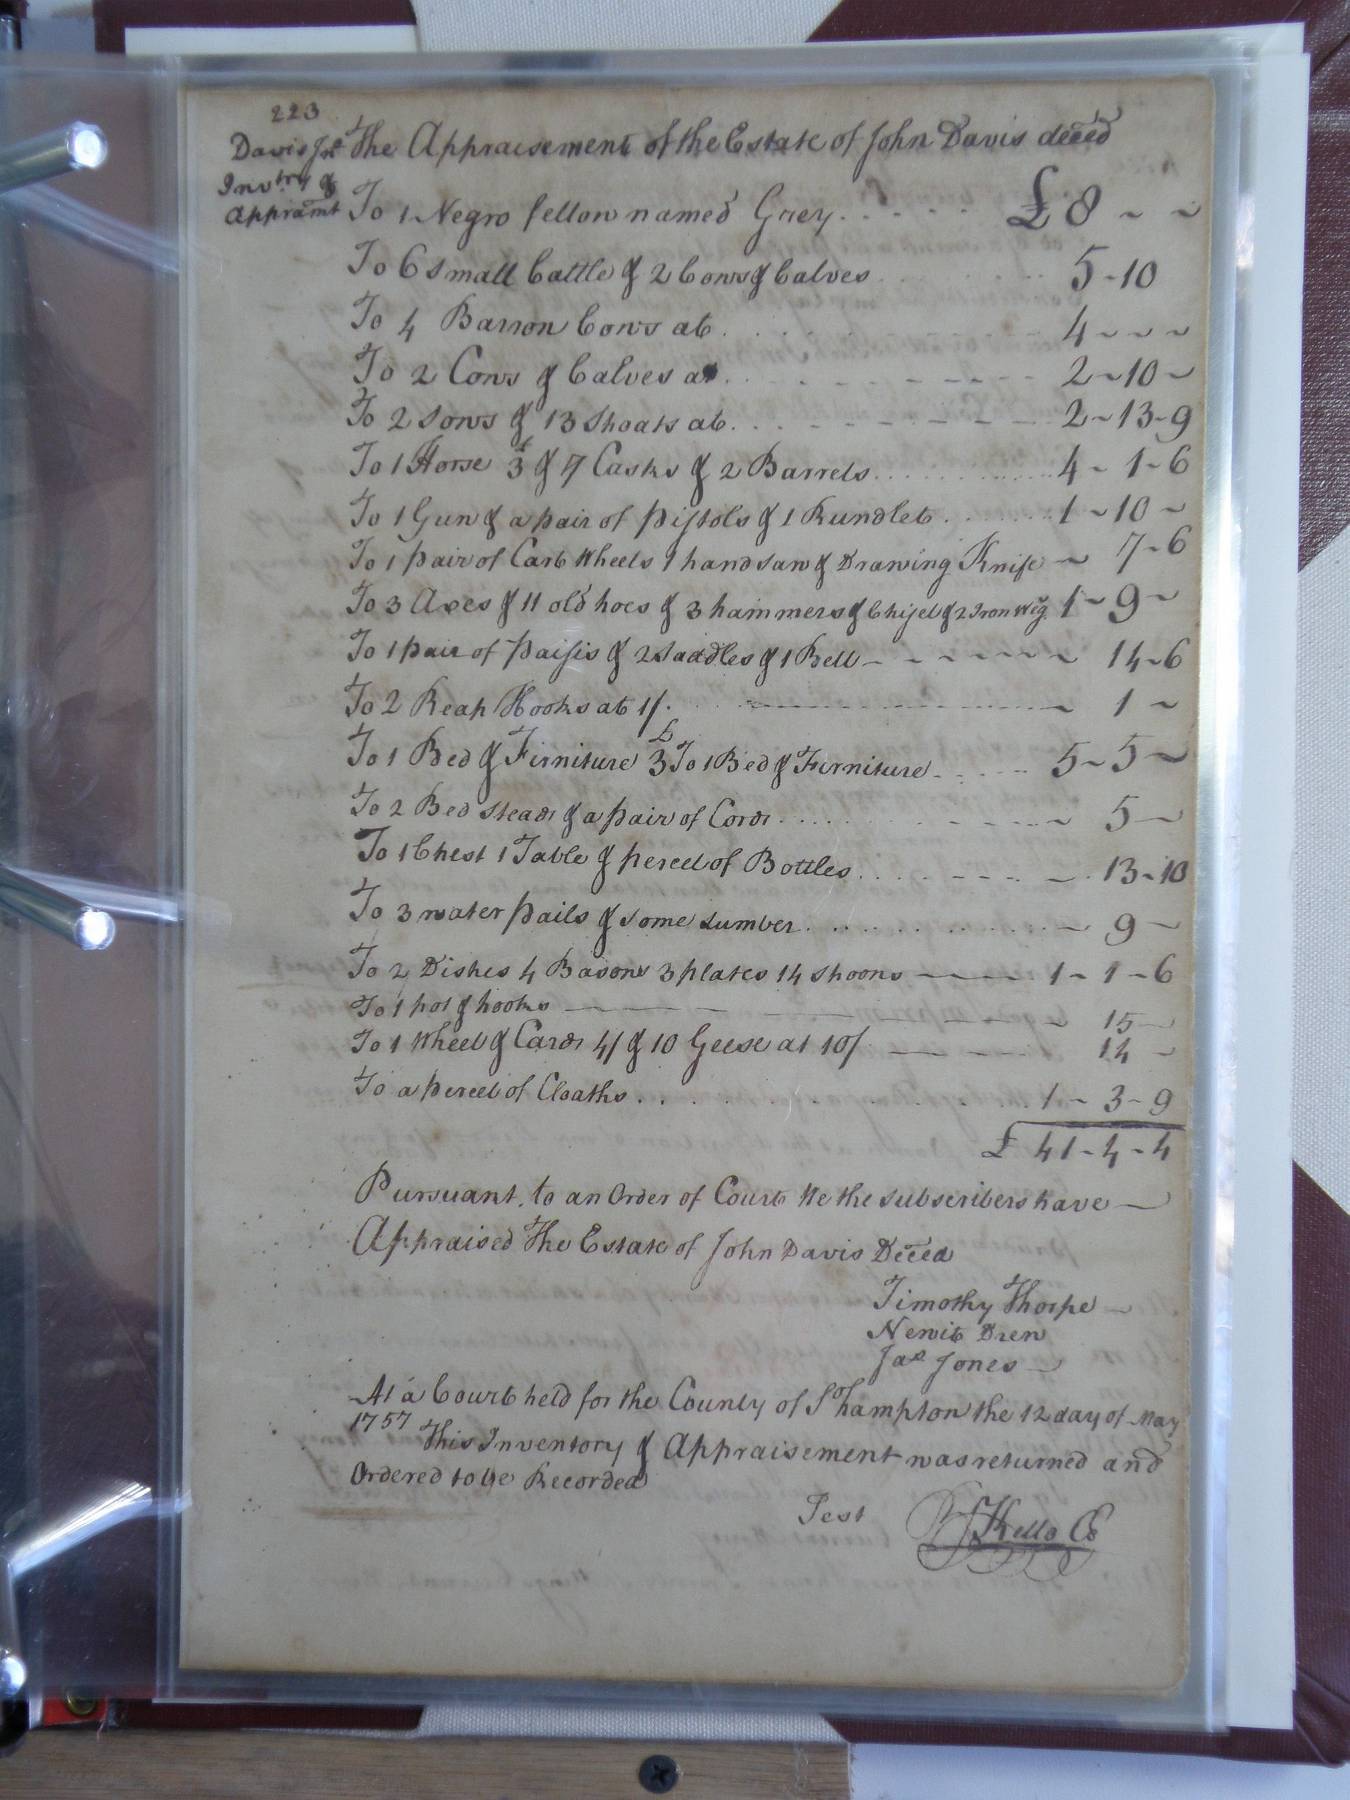 223
Davis Jr The Appraisement of the Estate of John Davis deced
Invtry &
Appramt To 1 Negro fellow named Grey . . . . . £ 8 ~ ~
To 6 small Cattle & 2 Cows & Calves . . . . 5-10
To 4 Barron Cows at . . . . 4 ~ ~ ~
To 2 Cows & Calves at . . . . 2~10~
To 2 sows & 13 Shoats at . . . . 2~13-9
To 1 Horse £3 & 7 Casks & 2 Barrels . . . . 4~1~6
To 1 Gun & a pair of Pistols & 1 Rundlet . . . . 1~10~
To 1 pair of Cart Wheels 1 hand saw & Drawing Knife ~ 7~6
To 3 Axes & 11 old hoes & 3 hammers & Chisel & 2 Iron Weg 1~9~
To 1 pair of & 2 Saddles & 1 Bell - - - - 14~6
To 2 Reap Hooks at 1/. . . . 1 ~
To 1 Bed & Firniture £3 To 1 Bed & Firniture . . . . 5~5~
To 2 Bed steads & a pair of Cords . . . . 5 —
To 1 Chest 1 Table & percel of Bottles . . . . 13-10
To 3 water pails & some Lumber . . . . 9 —
To 2 Dishes 4 Basons 3 plates 14 Spoons —— 1-1-6
To 1 pot & hooks — — — — 15 —
To 1 Wheel & Cards 4/ & 10 Geese at 10/ — — 14 -
To a percel of Cloaths . . . . 1-3-9
£ 41-4-4
Pursuant to an Order of Court We the subscribers have —
Appraised The Estate of John Davis Deced
Timothy Thorpe —
Newit Drew
Jas Jones —
At a Court held for the County of So thampton the 12 day of May
1757 This Inventory & Appraisement was returned and
Ordered to be Recorded
Test R Kello Ck